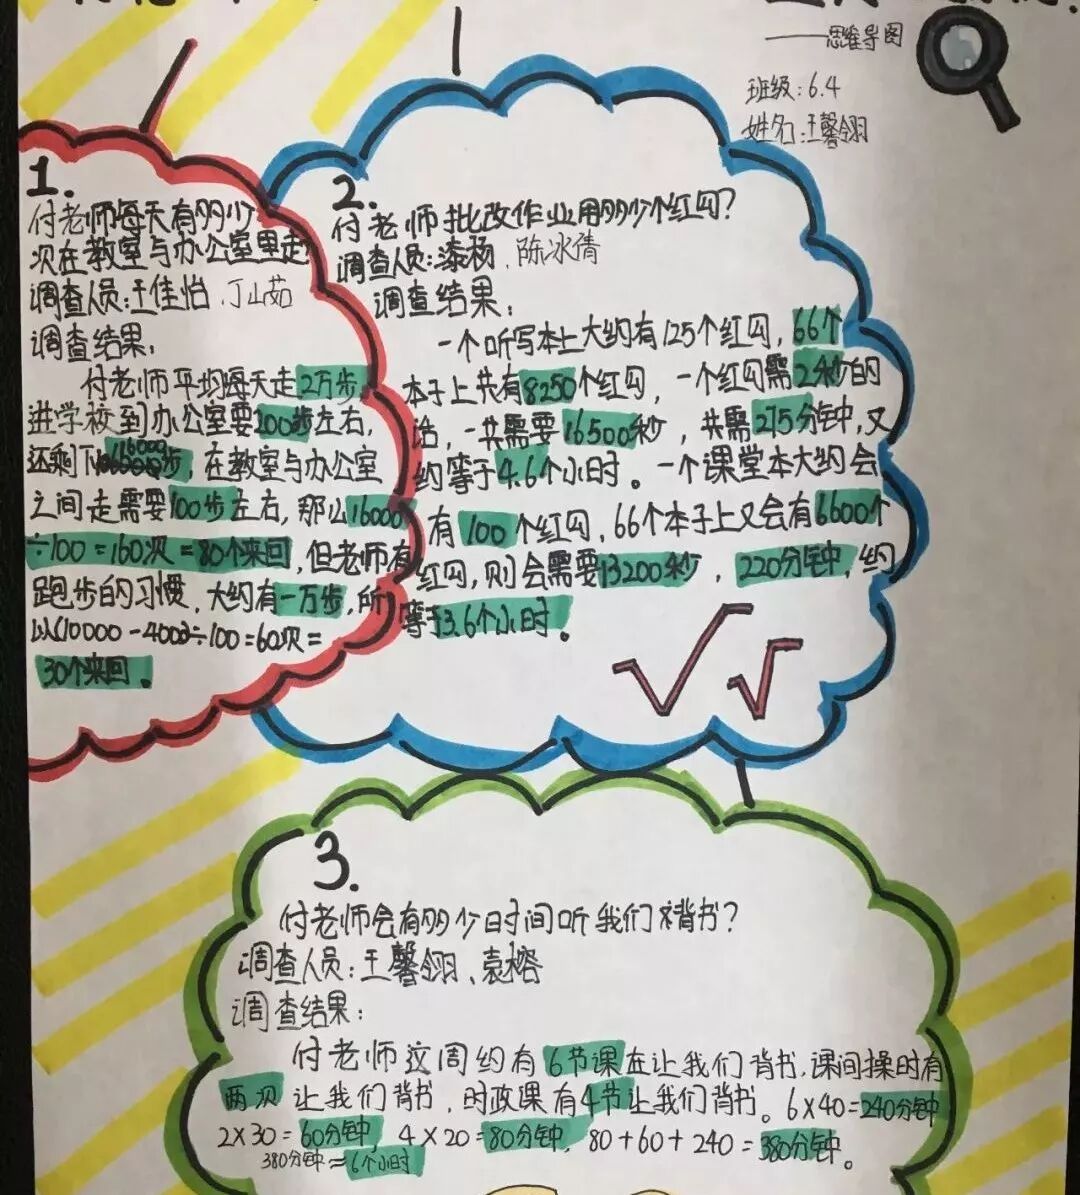 ——思维导图
班级:6.4
姓名:王馨翎
1.
付老师每天有多少
次在教室与办公室里走
调查人员:王佳怡、丁山茹
调查结果:
付老师平均每天走2万步
进学校到办公室要200步左右,
还剩下16000步,在教室与办公室
之间走需要100步左右,那么16000
÷100=160次=80个来回,但老师有
跑步的习惯,大约有一万步,所
以(10000-4000)÷100=60次=
30个来回。
2.
付老师批改作业用多少个红勾?
调查人员:漆杨、陈冰倩
调查结果:
一个听写本上大约有125个红勾,66个
本子上共有8250个红勾,一个红勾需2秒的
话,一共需要16500秒,共需275分钟,又
约等于4.6个小时。一个课堂本大约会
有100个红勾,66个本子上又会有6600个
红勾,则会需要13200秒,220分钟,约
等于3.6个小时。
3.
付老师会有多少时间听我们背书?
调查人员:王馨翎、袁榕
调查结果:
付老师这周约有6节课在让我们背书,课间操时有
两次让我们背书,时政课有4节让我们背书。6×40=240分钟
2×30=60分钟,4×20=80分钟,80+60+240=380分钟。
380分钟≈6个小时